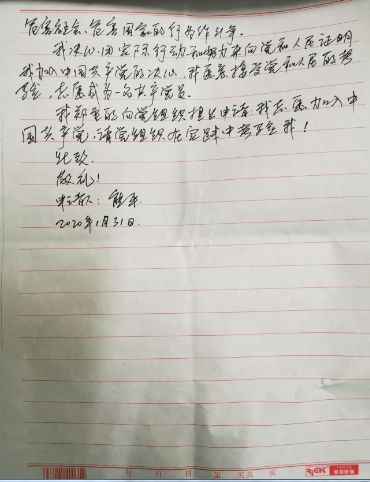 危害社会、危害国家的行为作斗争。
我决心用实际行动和努力来向党和人民证明
我加入中国共产党的决心，我愿意接受党和人民的考
验，志愿成为一名共产党员。
我郑重的向党组织提出申请：我志愿加入中
国共产党，请党组织在实践中考验我！
此致
敬礼！
申请人：熊平
2020年1月31日
年 月 日 第 页 共 页